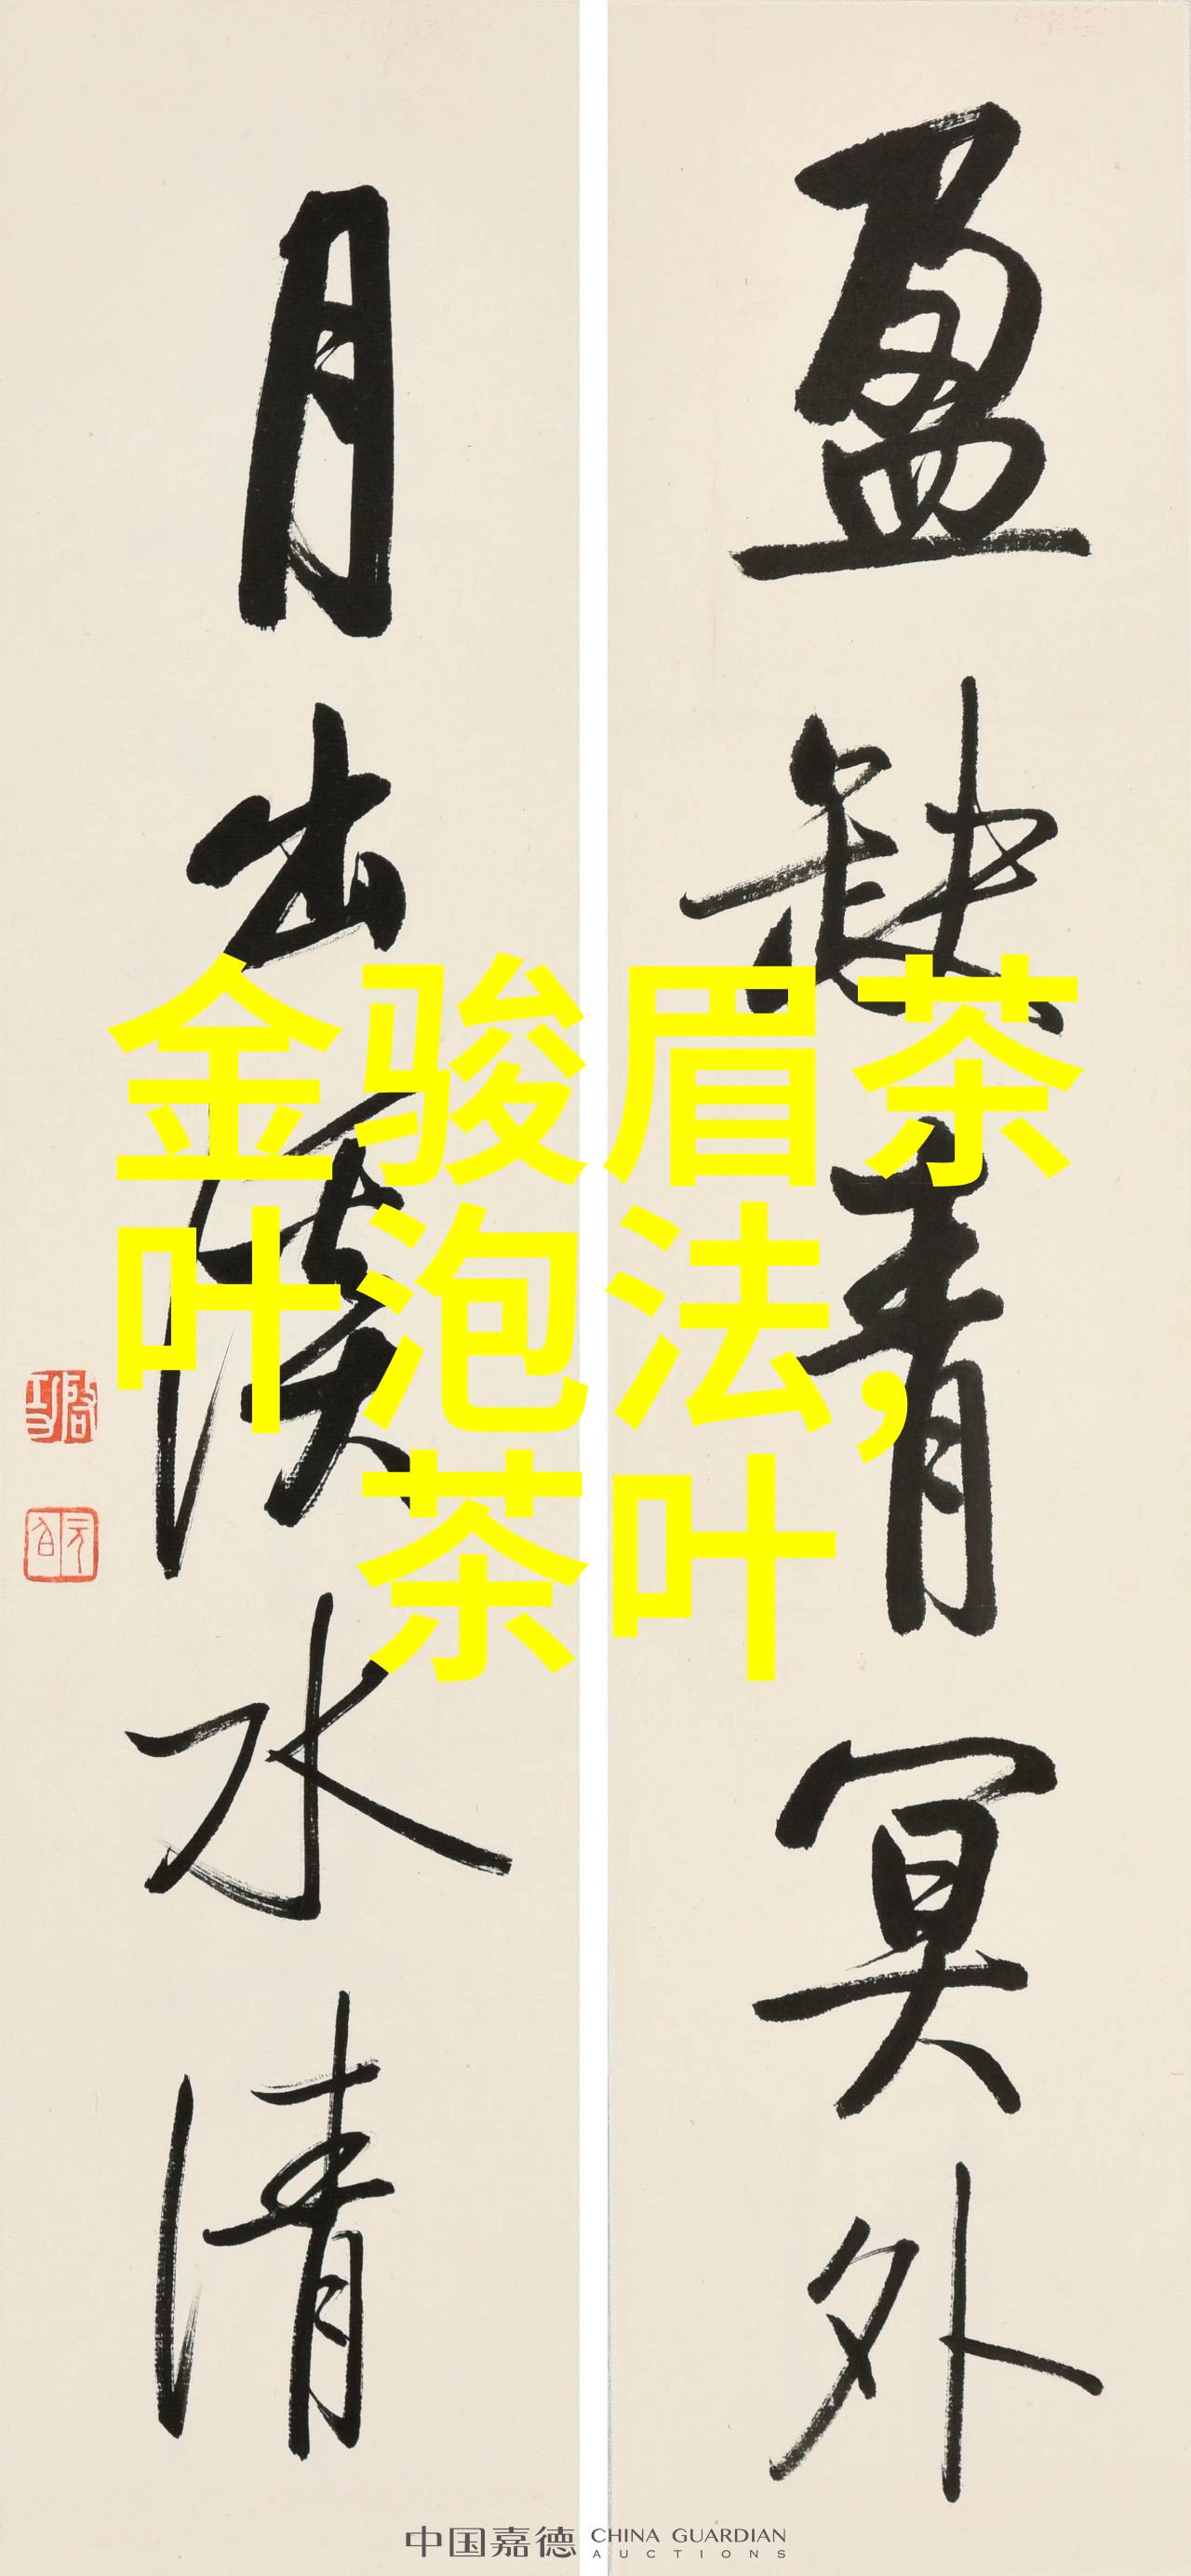 盈缺青冥外
月出水清
啟功
元白
金骏眉茶
叶泡法,
茶叶
中国嘉德 CHINA GUARDIAN
AUCTIONS